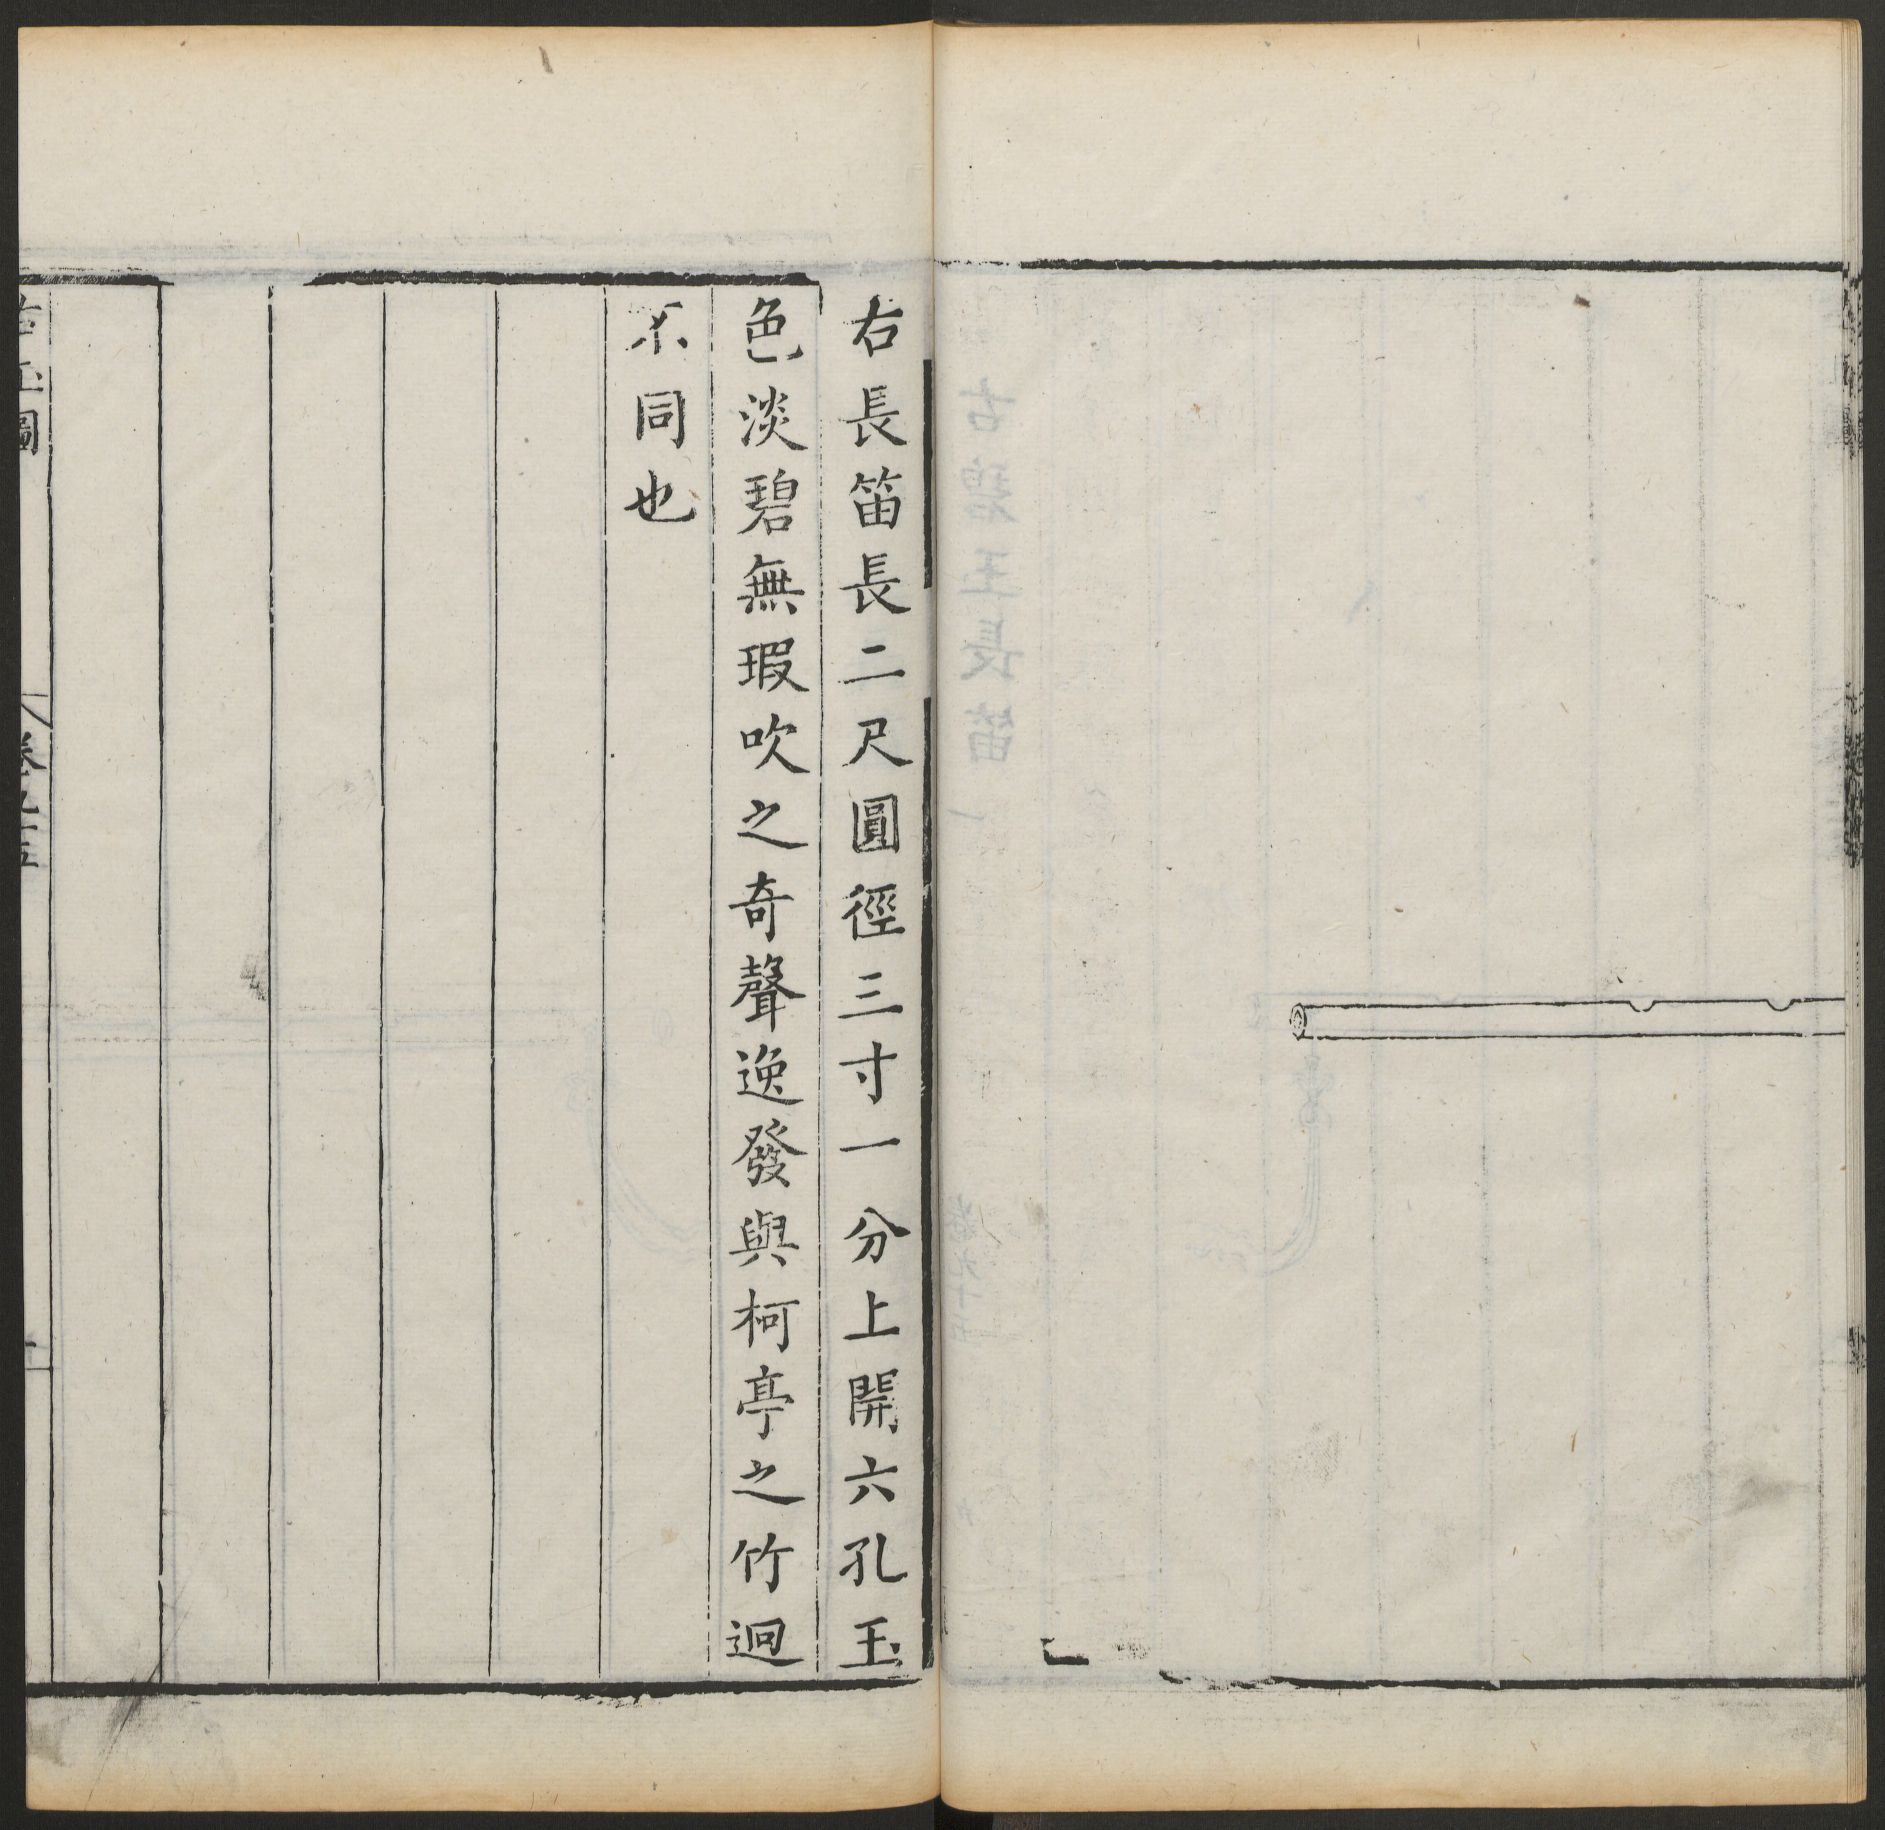 右長笛長二尺圓徑三寸一分上開六孔玉
色淡碧無瑕吹之奇聲逸發與柯亭之竹迥
不同也
古玉圖
卷九十五